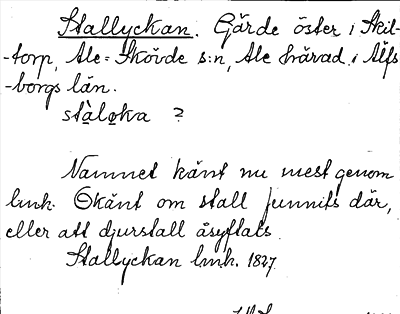 Stallyckan. Gärde öster i Skil-
-torp, Ale-Skövde s:n, Ale härad, i Älfs
-borgs län.
stàlo̱ka ?
Namnet känt nu mest genom
lmk. Okänt om stall funnits där,
eller att djurstall åsyftats.
Stallyckan lmk. 1827.